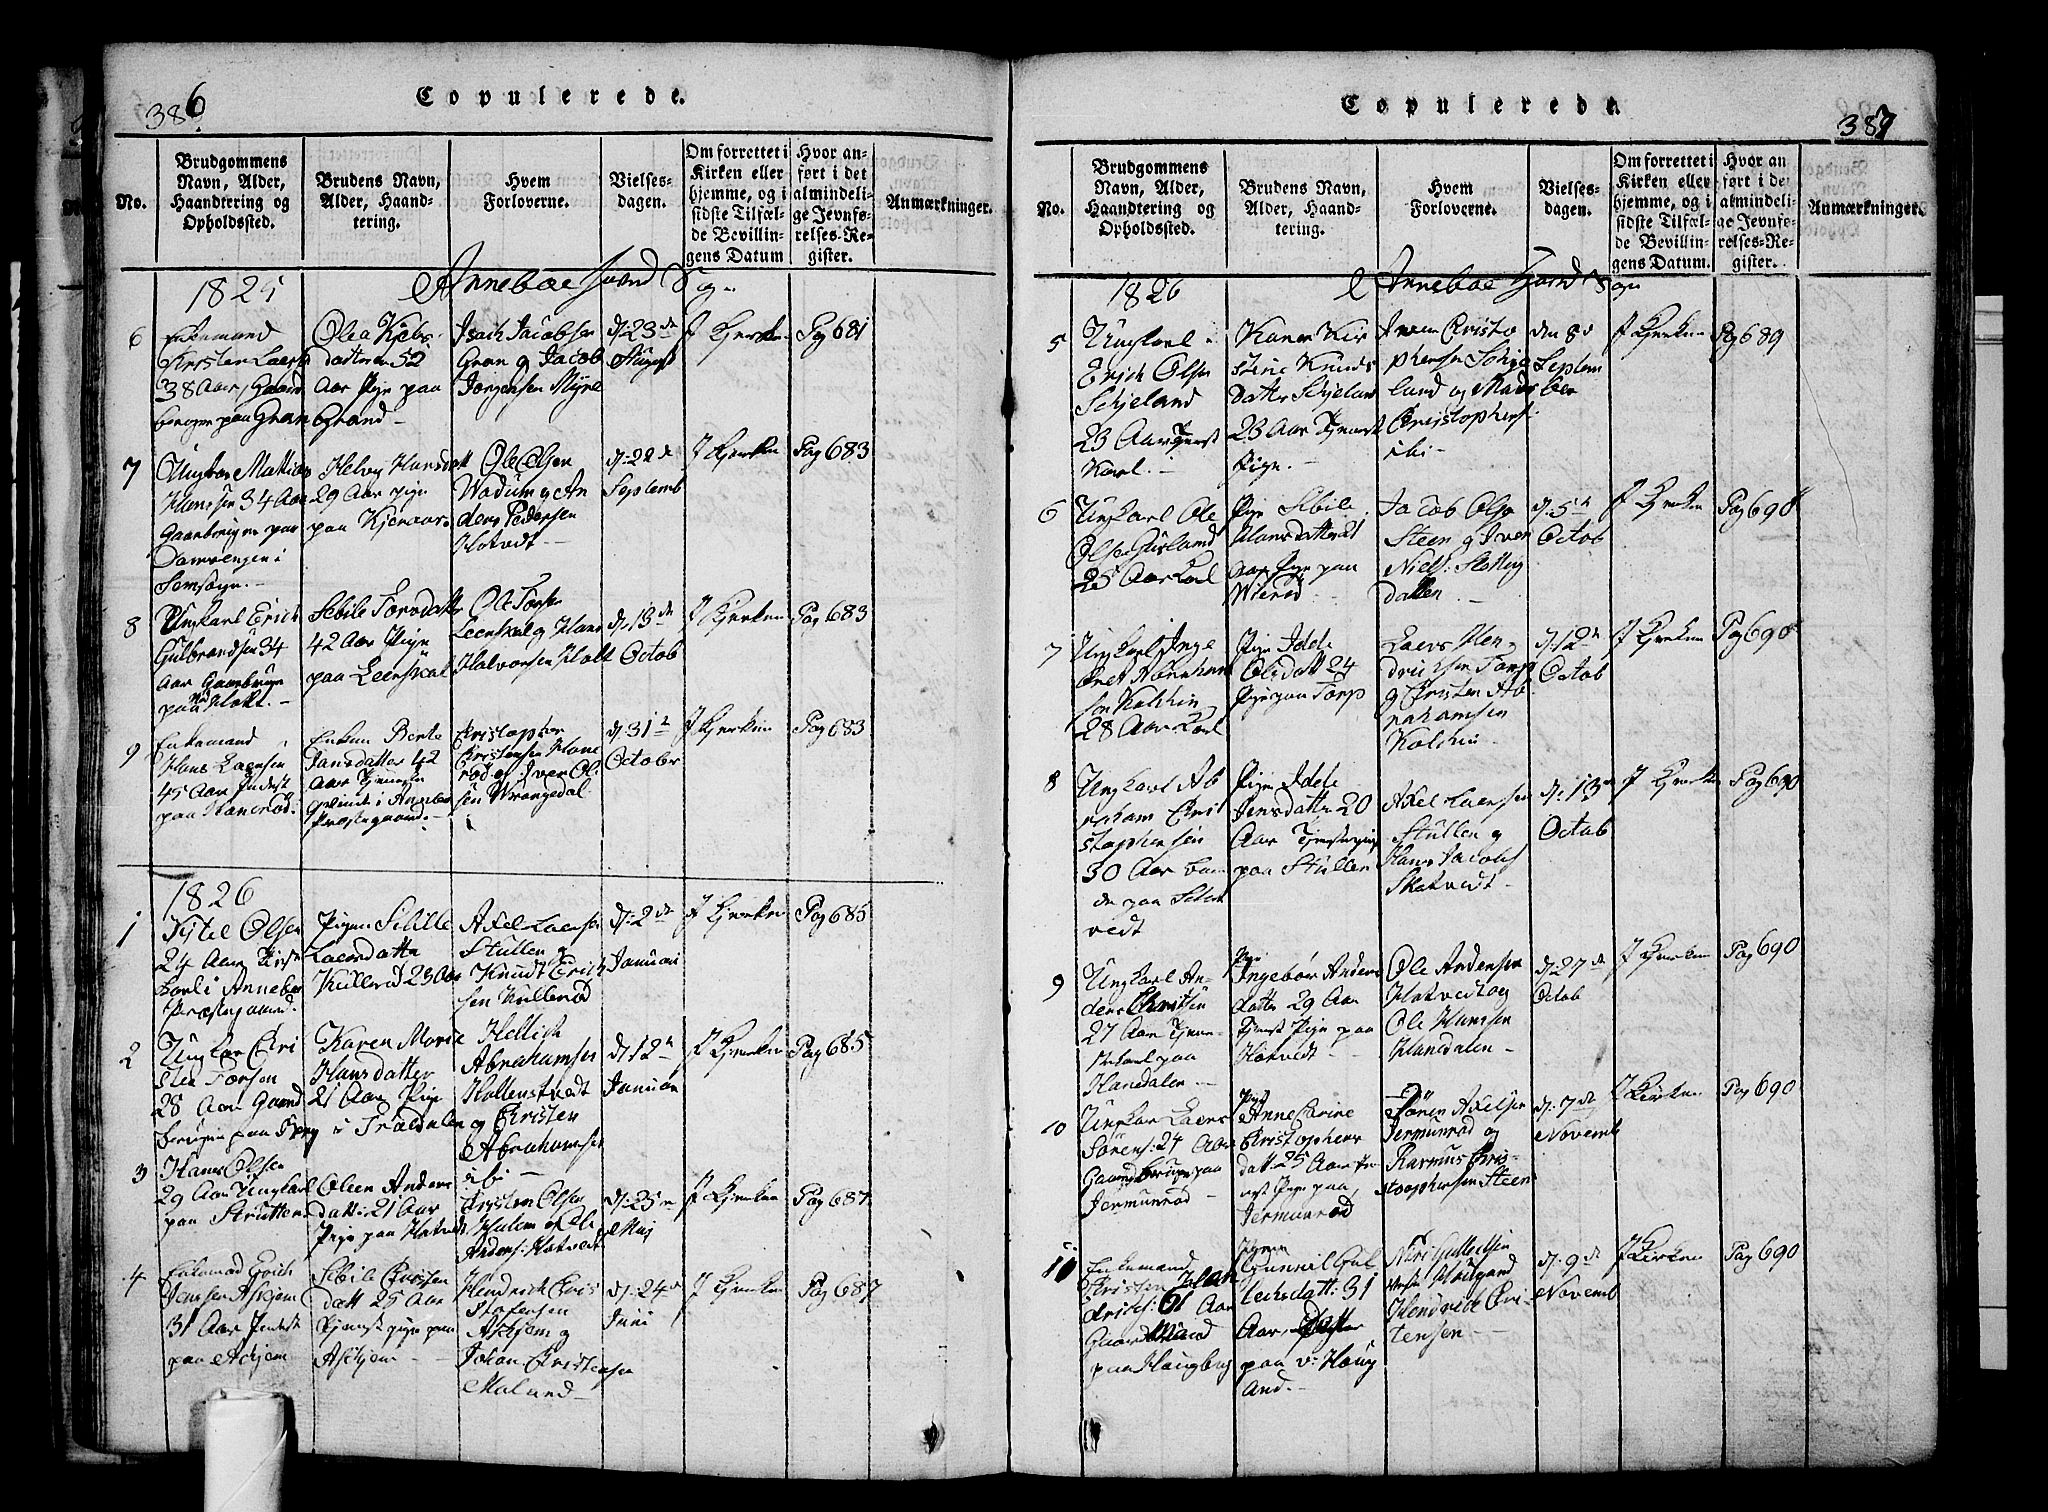 386
Copulerede.
No.
Brudgommens
Navn, Alder,
Haandtering og
Opholdssted.
Brudens Navn,
Alder, Haand-
tering.
Hvem
Forloverne.
Vielses-
dagen.
Om forrettet i
Kirken eller
hjemme, og i
sidste Tilfæl-
de Bevillin-
gens Datum
Hvor an-
ført i det
almindeli-
ge Jevnfø-
relses-Re-
gister.
Anmærkninger.
1825
Anneboe
6
Enkemand
38 Aar, Gaard
paa Gran
Olea
datter 52
Aar Pige paa
Grand
Isach Jacobsen
Gran og Jacob
Jorgensen Myre
d: 23de
August
I Kjerken
Pag 681
7
Mathias
Hansen 34 Aar
Gaardbruger paa
i
Semsogn.
Helvig Hansdatt
29 Aar pige
paa
Ole Olsen
Wadum og An
ders Pedersen
Hotvedt
d: 22de
Septemb
I Kjerken
Pag 683
8
Ungkarl Erich
Gulbrandsen 34
Aar Gaardbruger
paa Holst.
Sebile Torsdatter
42 Aar Pige
paa Leerskal
Ole Torsen
Leerskal og Hans
Halvorsen Holt
d: 13de
Octob
I Kjerken
Pag 683
9
Enkemand
Hans Laersen
45 Aar Inderst
paa Hanerød.
Enken Berte
Jansdatter 42
Aar
i Annebo
Præstegaard.
Cristopher
Cristensen Hane
rød og Iver Ol
sen Wrangedal
d: 31te
October
I Kjerken
Pag 683
1826
1
Kjtel Olsen
24 Aar
Karl i Annebo
Præstegaard.
Pigen Sibille
Laersdatter
Kullerød 23 Aar
Axel Laersen
Stullen og
Knudt Erich
sen Kullerød
d: 2de
Januari
I Kjerken
Pag 685
2
Ungkar Cri
sten Torsen
28 Aar Gaard
bruger paa Berg
Karen Marie
Hansdatter
21 Aar Pige
i Trældalen
Hellich
Abrahamsen
Hallenstvedt
og Cristen
Abrahamsen
ibi
d. 12te
Januar
I Kjerken
Pag 685
3
Hans Olsen
29 Aar Ungkarl
paa Strutten
Oleen Anders
datt: 21 Aar
Pige paa Hotvedt
Cristen Olsen
Holem og Ole
Anders: Hotvedt
d: 25
Maj
I Kjerken
Pag 687
4
Enkemand Erich
Jensen Askjem
31 Aar Inderst
paa Askjem
Sebile Cristen
datt 25 Aar
Tjenest pige paa
Askjem
Hendrich Cris
stofersen
Askjem og
Johan Cristensen
Moland
d: 24de
Juni
I Kjerken
Pag 687
387
Copulerede.
No.
Brudgommens
Navn, Alder,
Haandtering og
Opholdssted.
Brudens Navn,
Alder, Haand-
tering.
Hvem
Forloverne.
Vielses-
dagen.
Om forrettet i
Kirken eller
hjemme, og i
sidste Tilfæl-
de Bevillin-
gens Datum.
Hvor an
ført i det
almindeli-
ge Jevnfø-
relses-Re-
gister.
Anmærkninger.
1826
Anneboe
5
Ungkarl
Erich Olsen
Schjeland
23 Aar Tjenest
Karl.
Karen Kir
stine Knuds
datter Schjelan
23 Aar Tjenest
Pige.
Iver Cristo
phersen Schje
land og Mads
Christophers
ibi
den 8de
Septem
ber
I Kjerken
Pag 689
6
Ungkarl Ole
Olsen Gusland
25 Aar Karl
Pige Sibile
Hansdatter 21
Aar Pige paa
Wierød
Jacob Olsen
Steen og Iver
Niels: Slotteig
dallen
d: 5te
Octob
I Kjerken
Pag 690
7
Ungkarl Inge
bret Abraham
sen Kolskin
28 Aar Karl
Pige Idde
Olesdatt 24
Pige paa Torp
Laers Hen
drichsen Torp
og Cristen Ab
rahamsen
Kolskin
d: 12te
Octob
I Kjerken
Pag 690
8
Ungkarl Ab
raham Crist
stophersen
30 Aar bon
de paa
vedt
Pige Idele
Jensdatter 20
Aar Tjenestepige
paa Stullen
Axel Laersen
Stullen og
Hans Jacobs
Skatvedt
d: 13de
Octob
I Kjerken
Pag 690
9
Ungkarl An-
ders Christsen
27 Aar Tjene-
stekarl paa
Hanedalen
Pige
Ingebør Anders
datter 29 Aar
Tjenest Pige paa
Hotvedt
Ole Andersen
Hotvedt og
Ole Hansen
Hanedalen
d: 27de
Octob
I Kjerken
Pag 690
10
Ungkar Laers
Sørens: 24 Aar
Gaardbruger paa
Jermunrød
Pige
Anne Carine
Cristophers
datt: 25 Aar
Pige paa
Jermunrød
Sören Axelsen
Jermunrød og
Rasmus Cris-
stophersen Steen
d: 7de
Novemb
I Kirken
Pag 690
11
Enkemand
Cristen Hen
drichs: 61 Aar
Gaardmand
paa Haugberg
Pigen
Gunnil Gul
lechsdatt: 31
Aar,
paa v: Houg
And.
Hendrich Cri
tensen
d: 9de
Novemb
I Kirken
Pag 690